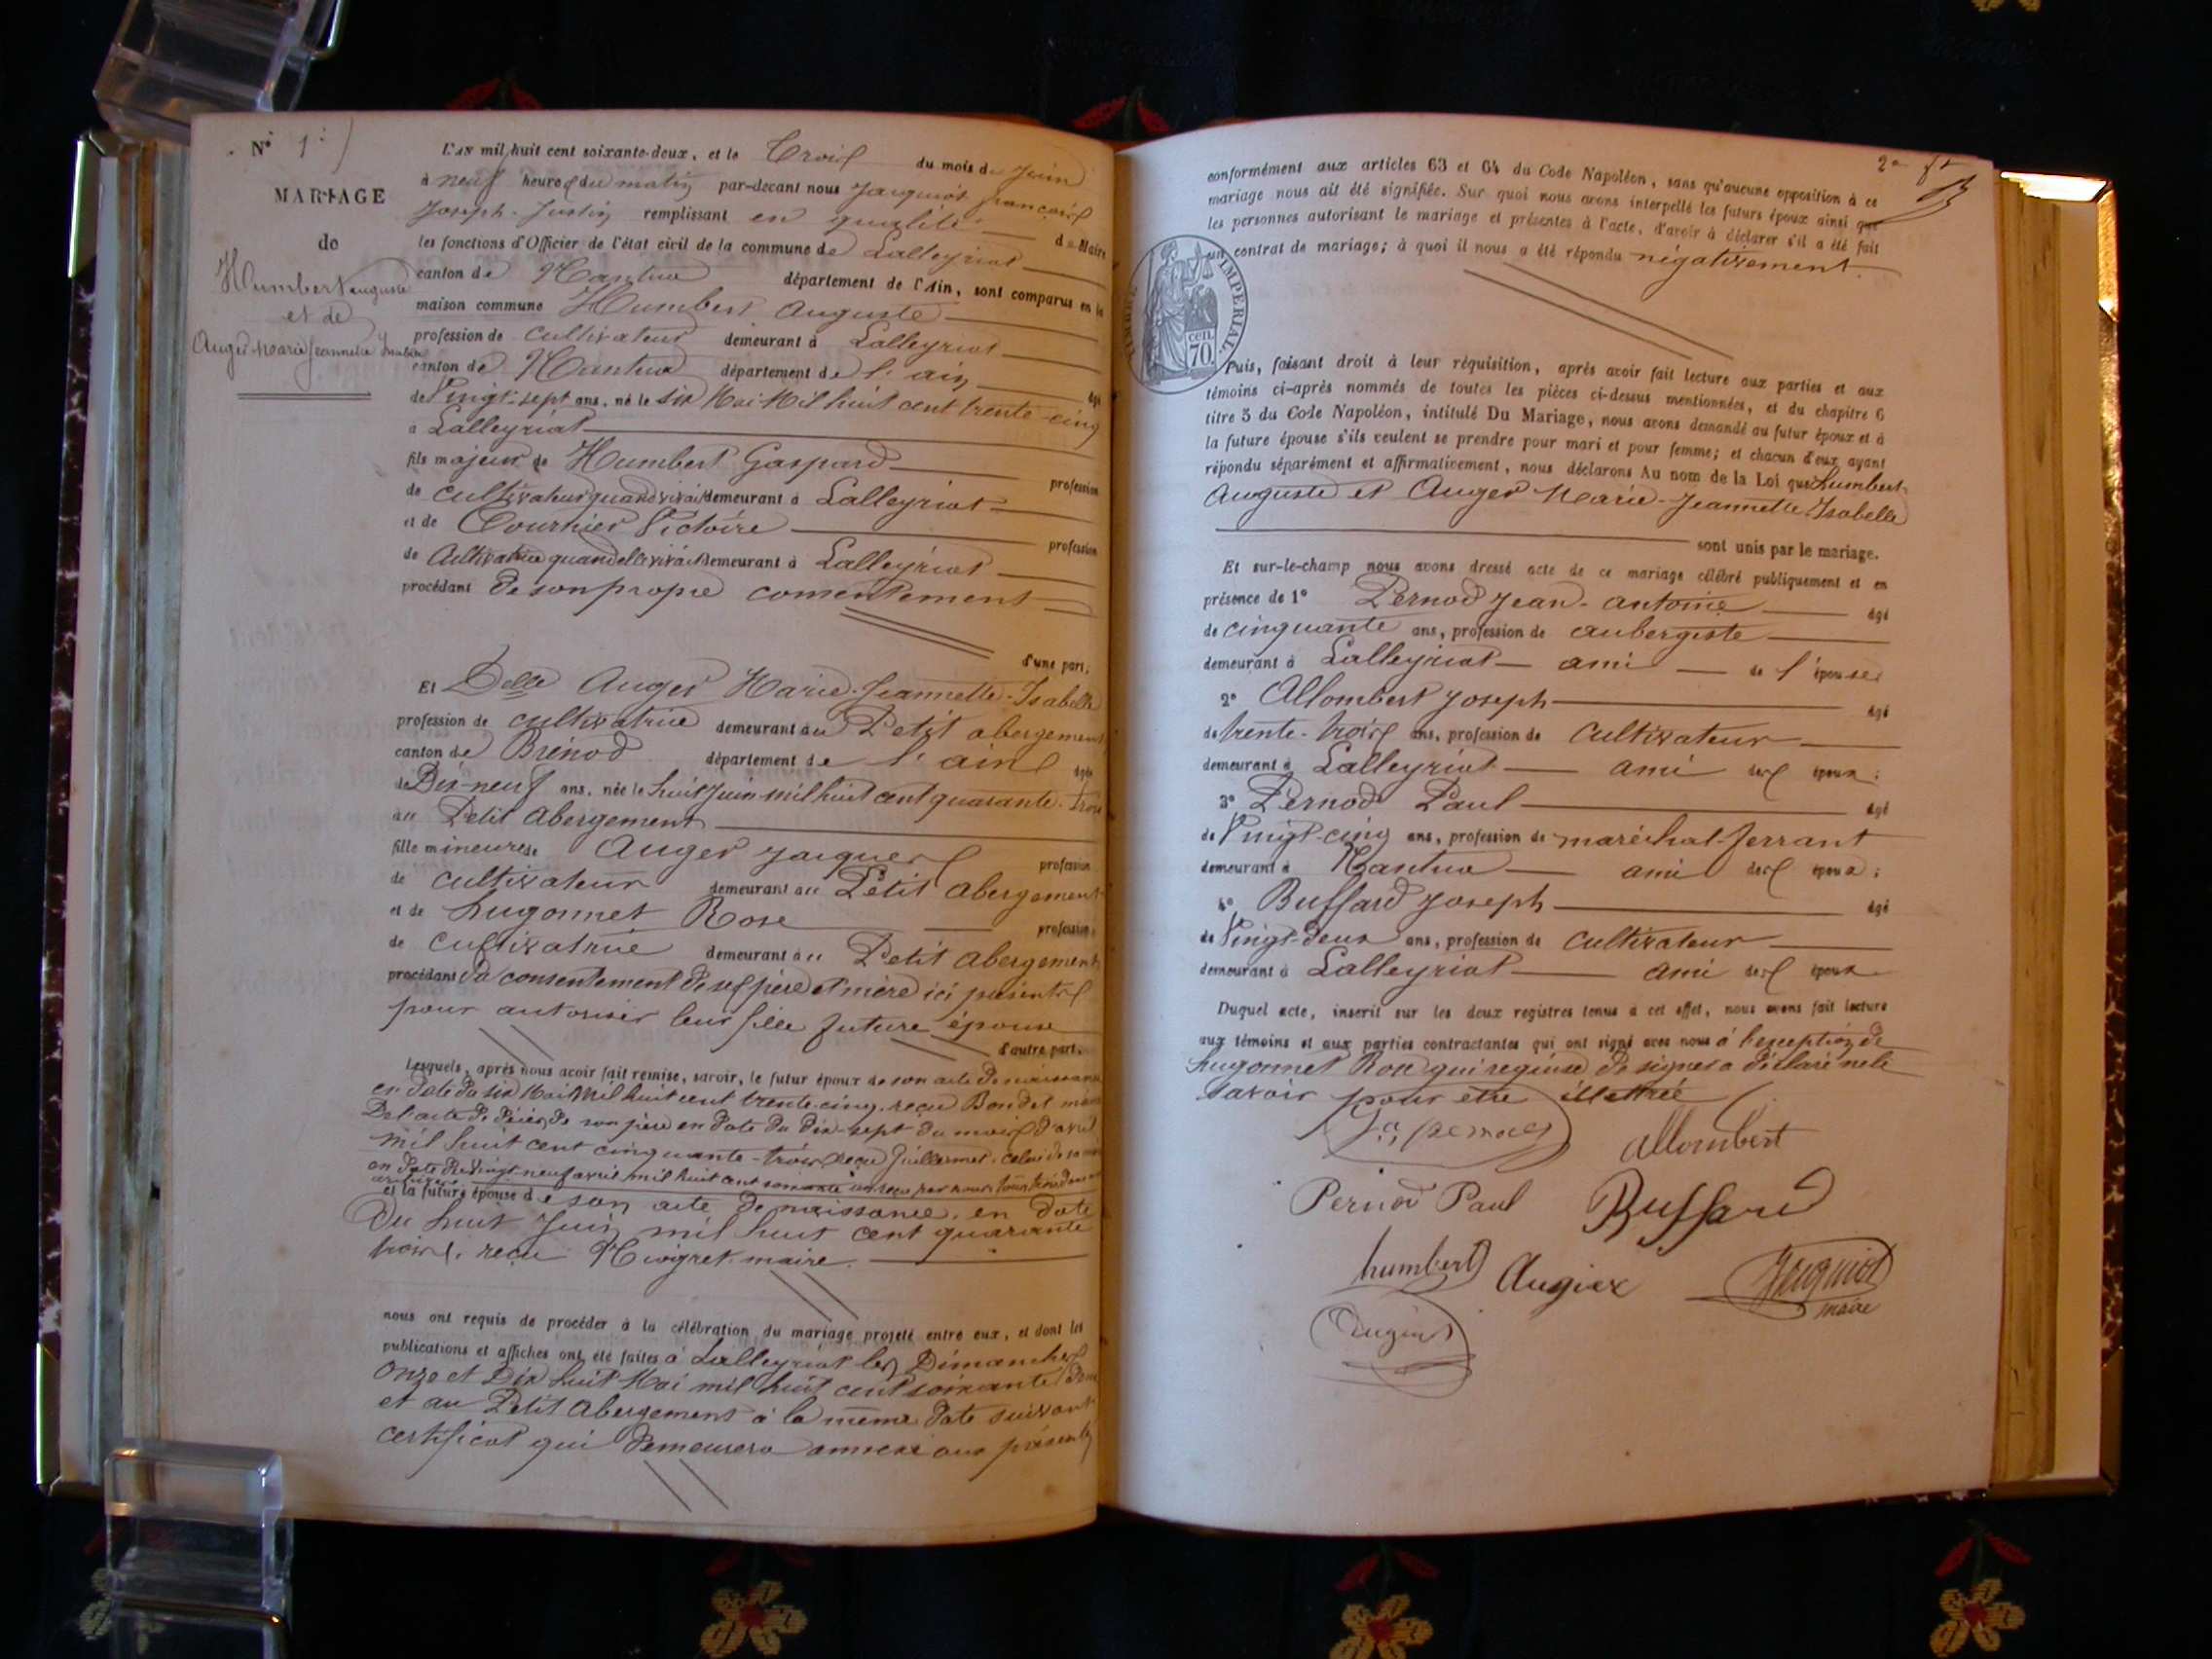 N° 1
MARIAGE
de
Humbert auguste
et de
Auger Marie Jeannette Isabelle
L'AN mil huit cent soixante-deux, et le Trois du mois de Juin
à neuf heures du matin par-devant nous Jacquiot françois
Joseph-Justin remplissant en qualité de Maire
les fonctions d'Officier de l'état civil de la commune de Lalleyriat
canton de Nantua département de l'Ain, sont comparus en la
maison commune Humbert Auguste
profession de cultivateur demeurant à Lalleyriat
canton de Nantua département de l'ain âgé
de Vingt-sept ans, né le six Mai Mil huit cent trente-cinq
à Lalleyriat
fils majeur de Humbert Gaspard profession
de cultivateur quand vivait demeurant à Lalleyriat
et de Tournier Victoire profession
de Cultivatrice quand elle vivait demeurant à Lalleyriat
procédant de son propre consentement
d'une part;
Et Delle Auger Marie-Jeannette-Isabelle
profession de cultivatrice demeurant au Petit abergement
canton de Brénod département de l'ain âgée
de Dix-neuf ans, née le huit Juin mil huit cent quarante-trois
au Petit Abergement
fille mineure de Auger Jacques profession
de cultivateur demeurant au Petit Abergement
et de hugonnet Rose profession
de cultivatrice demeurant au Petit Abergement
procédant du consentement de ses père et mère ici présents
pour autoriser leur fille future épouse
d'autre part.
Lesquels, après nous avoir fait remise, savoir, le futur époux de son acte de naissance
en date du six Mai Mil huit cent trente-cinq, reçu Bondet maire
De l'acte de décès de son père en date du dix-sept du mois d'avril
mil huit cent cinquante-trois reçu Guillermet, celui de sa mère
en date du Vingt-neuf avril mil huit cent soixante un reçu par nous
et la future épouse de son acte de naissance, en date
Du huit Juin mil huit cent quarante
trois, reçu Nivigret maire.
nous ont requis de procéder à la célébration du mariage projeté entre eux, et dont les
publications et affiches ont été faites à Lalleyriat les Dimanches
onze et Dix huit Mai mil huit cent soixante Deux
et au Petit Abergement à la même date suivant
certificat qui demeurera annexé aux présentes
2e ft
conformément aux articles 63 et 64 du Code Napoléon, sans qu'aucune opposition à ce
mariage nous ait été signifiée. Sur quoi nous avons interpellé les futurs époux ainsi que
les personnes autorisant le mariage et présentes à l'acte, d'avoir à déclarer s'il a été fait
un contrat de mariage; à quoi il nous a été répondu négativement.
TIMBRE IMPERIAL
70 cen.
Puis, faisant droit à leur réquisition, après avoir fait lecture aux parties et aux
témoins ci-après nommés de toutes les pièces ci-dessus mentionnées, et du chapitre 6
titre 5 du Code Napoléon, intitulé Du Mariage, nous avons demandé au futur époux et à
la future épouse s'ils veulent se prendre pour mari et pour femme; et chacun d'eux ayant
répondu séparément et affirmativement, nous déclarons Au nom de la Loi que humbert
Auguste et Auger Marie-Jeannette-Isabelle
sont unis par le mariage.
Et sur-le-champ nous avons dressé acte de ce mariage célébré publiquement et en
présence de 1° Pernod Jean-antoine âgé
de cinquante ans, profession de aubergiste
demeurant à Lalleyriat ami de l'épouse
2° Allombert Joseph âgé
de trente-trois ans, profession de cultivateur
demeurant à Lalleyriat ami des époux;
3° Pernod Paul âgé
de Vingt-cinq ans, profession de maréchal-ferrant
demeurant à Nantua ami des époux;
4° Buffard Joseph âgé
de Vingt-deux ans, profession de cultivateur
demeurant à Lalleyriat ami des époux
Duquel acte, inscrit sur les deux registres tenus à cet effet, nous avons fait lecture
aux témoins et aux parties contractantes qui ont signé avec nous à l'exception de
hugonnet Rose qui requise de signer a déclaré ne le
savoir pour être illettrée
Ja, pernod allombert
Pernod Paul Buffard
humbert Augier Jaquiot
maire
Augier